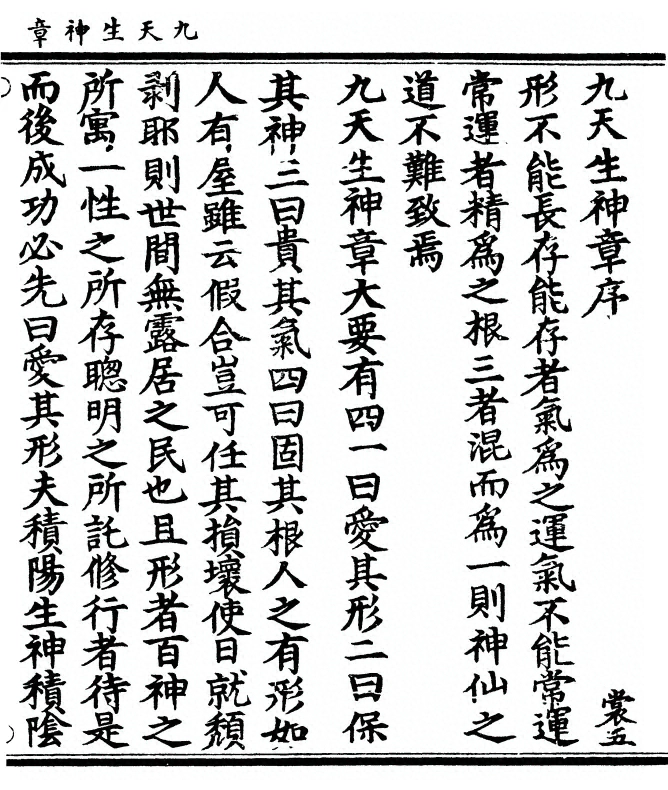 九天生神章
九天生神章序
裳五
形不能長存能存者氣爲之運氣不能常運
常運者精爲之根三者混而爲一則神仙之
道不難致焉
九天生神章大要有四一曰愛其形二曰保
其神三曰貴其氣四曰固其根人之有形如
人有屋雖云假合豈可任其損壞使日就頽
剥耶則世間無露居之民也且形者百神之
所寓一性之所存聰明之所託修行者待是
而後成功必先曰愛其形夫積陽生神積陰